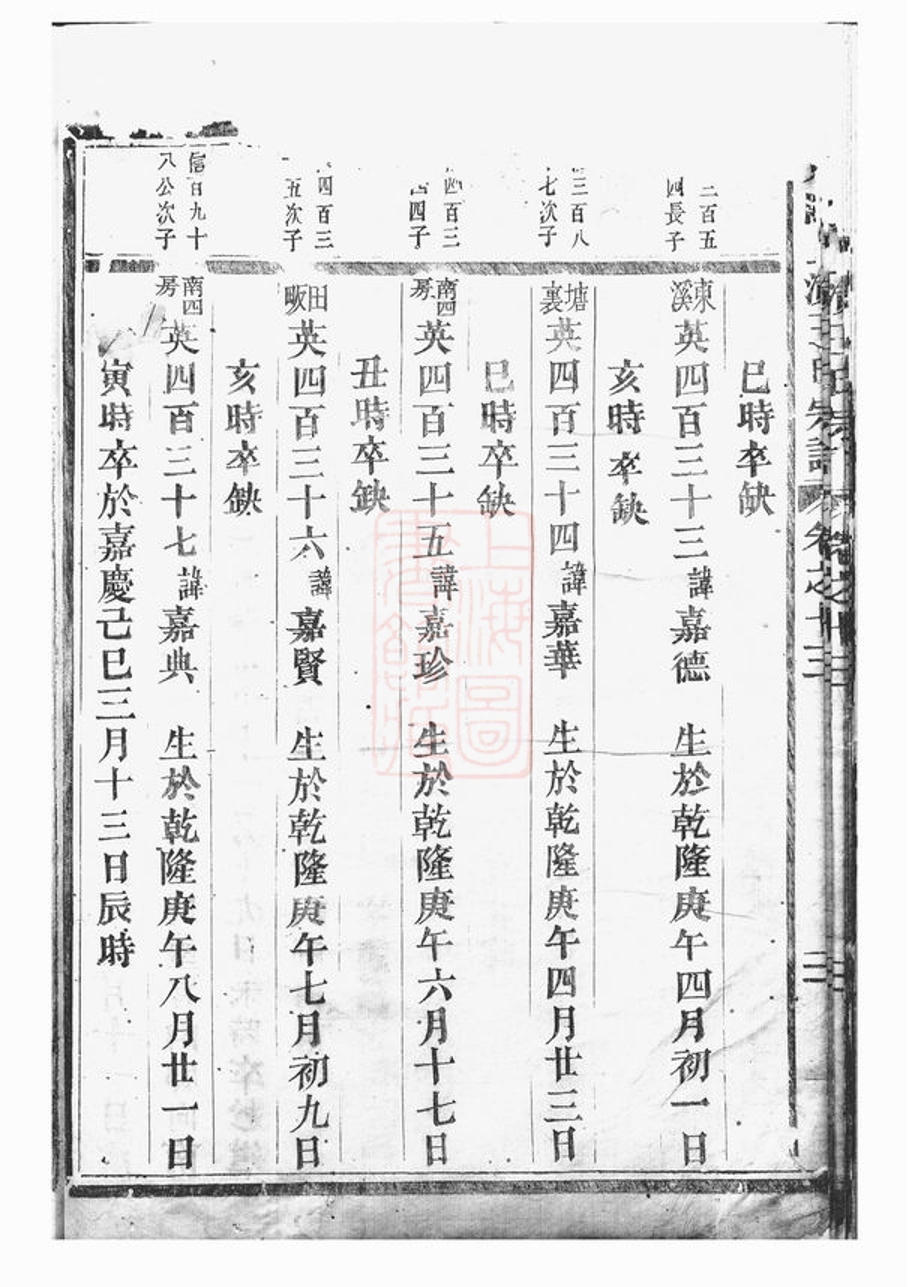 王氏宗譜
卷之十三
巳時卒缺
百五
四長子
東溪英四百三十三諱嘉德 生於乾隆庚午四月初一日
亥時卒缺
三百八
七次子
塘裏英四百三十四諱嘉華 生於乾隆庚午四月廿三日
巳時卒缺
四百三
四子
南四房英四百三十五諱嘉珍 生於乾隆庚午六月十七日
丑時卒缺
四百三
五次子
田畈英四百三十六諱嘉賢 生於乾隆庚午七月初九日
亥時卒缺
信百九十
八公次子
南四房英四百三十七諱嘉典 生於乾隆庚午八月廿一日
寅時卒於嘉慶己巳三月十三日辰時
上海圖書館藏